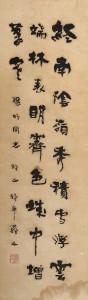 終南陰嶺秀積雪浮雲
端林表明霽色城中增
暮寒
同志